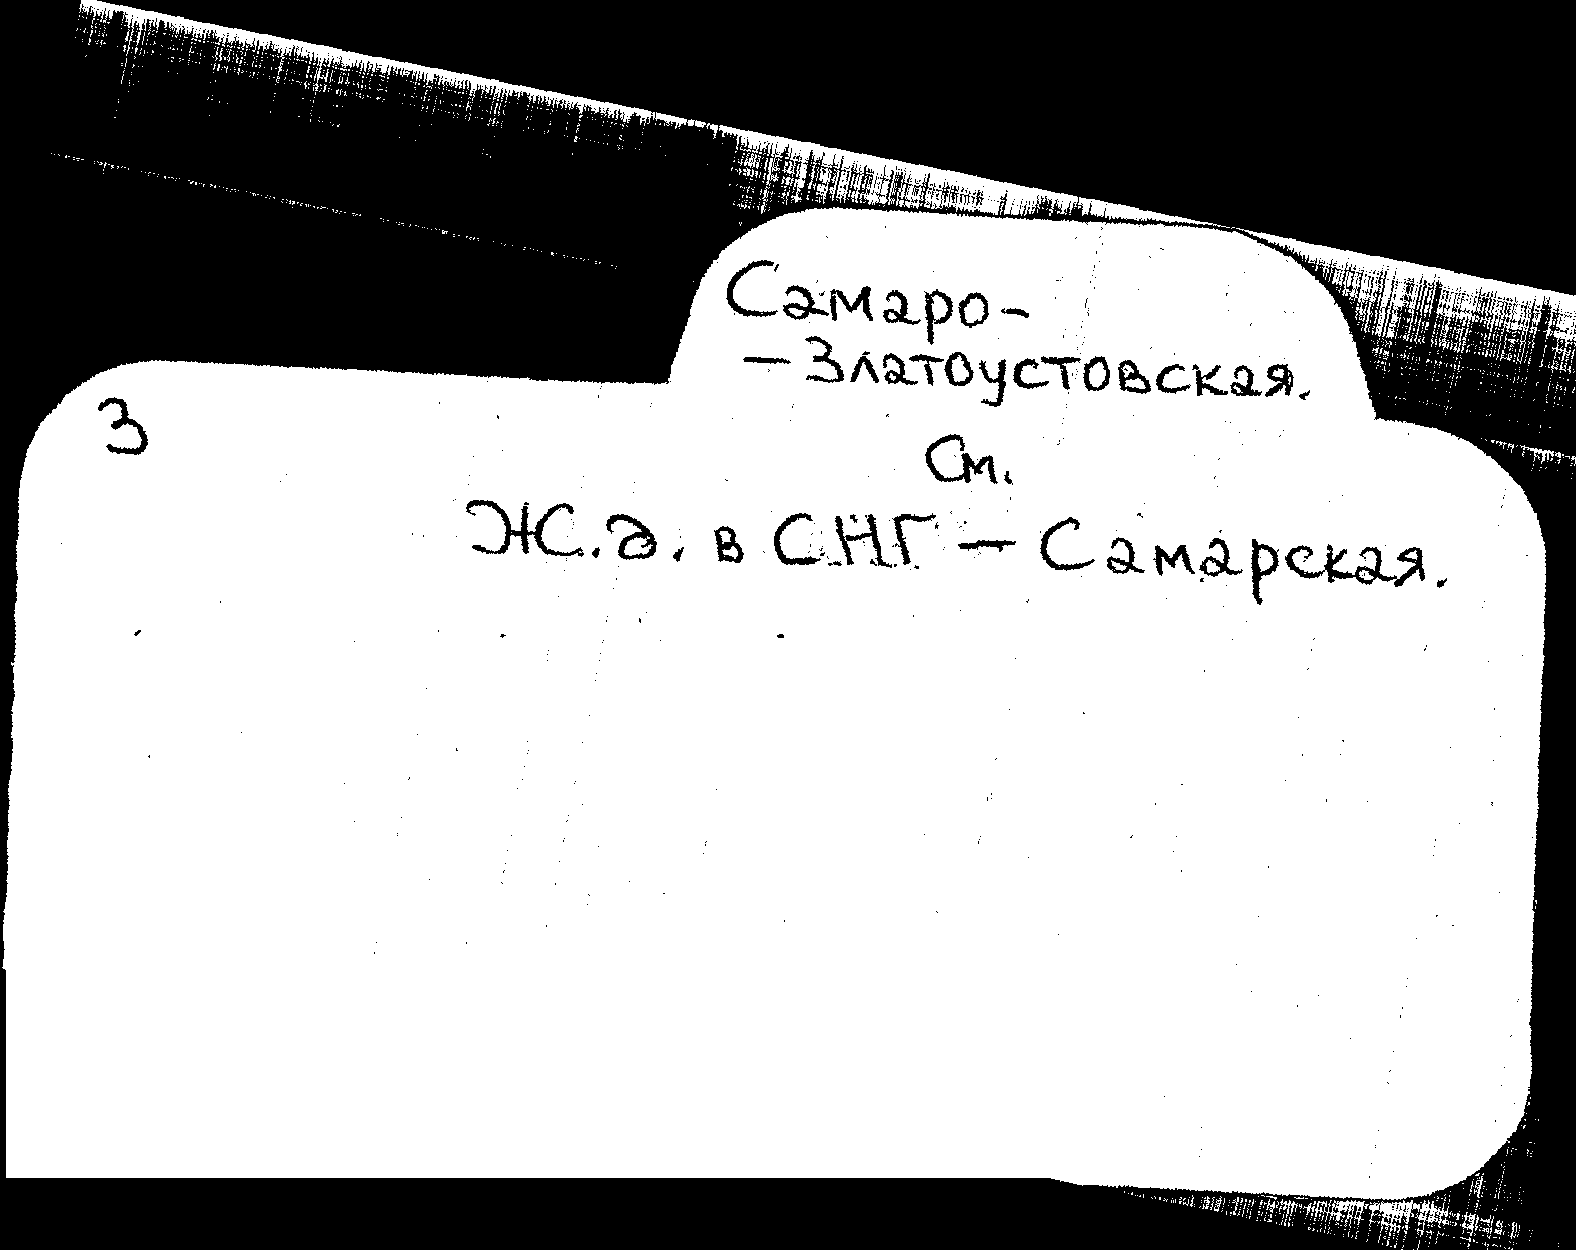 Самаро-
- Златоустовская.
3
См.
Ж.д. в СНГ - Самарская.